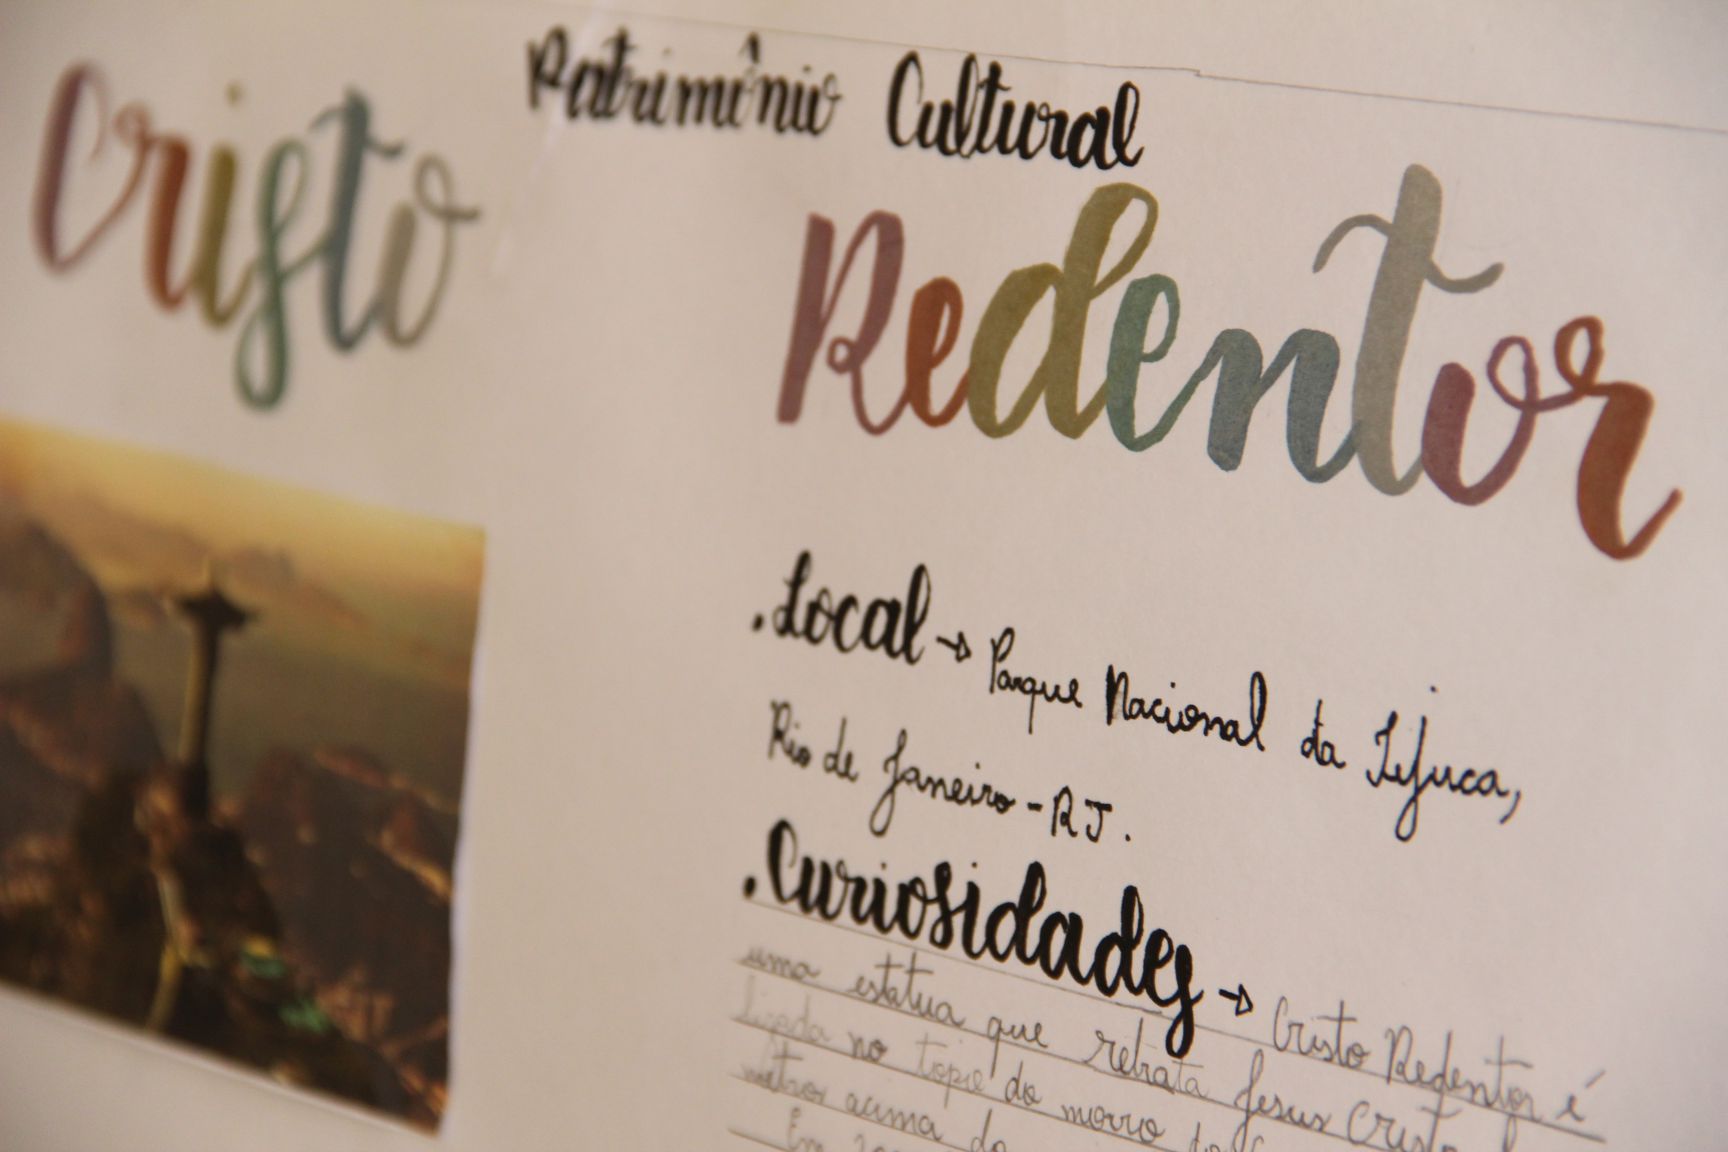 Patrimônio Cultural
Cristo Redentor
.Local → Parque Nacional da Tijuca,
Rio de Janeiro - RJ.
.Curiosidades → Cristo Redentor é
uma estatua que retrata Jesus Cristo
lizada no topo do morro do
metros acima do
Em